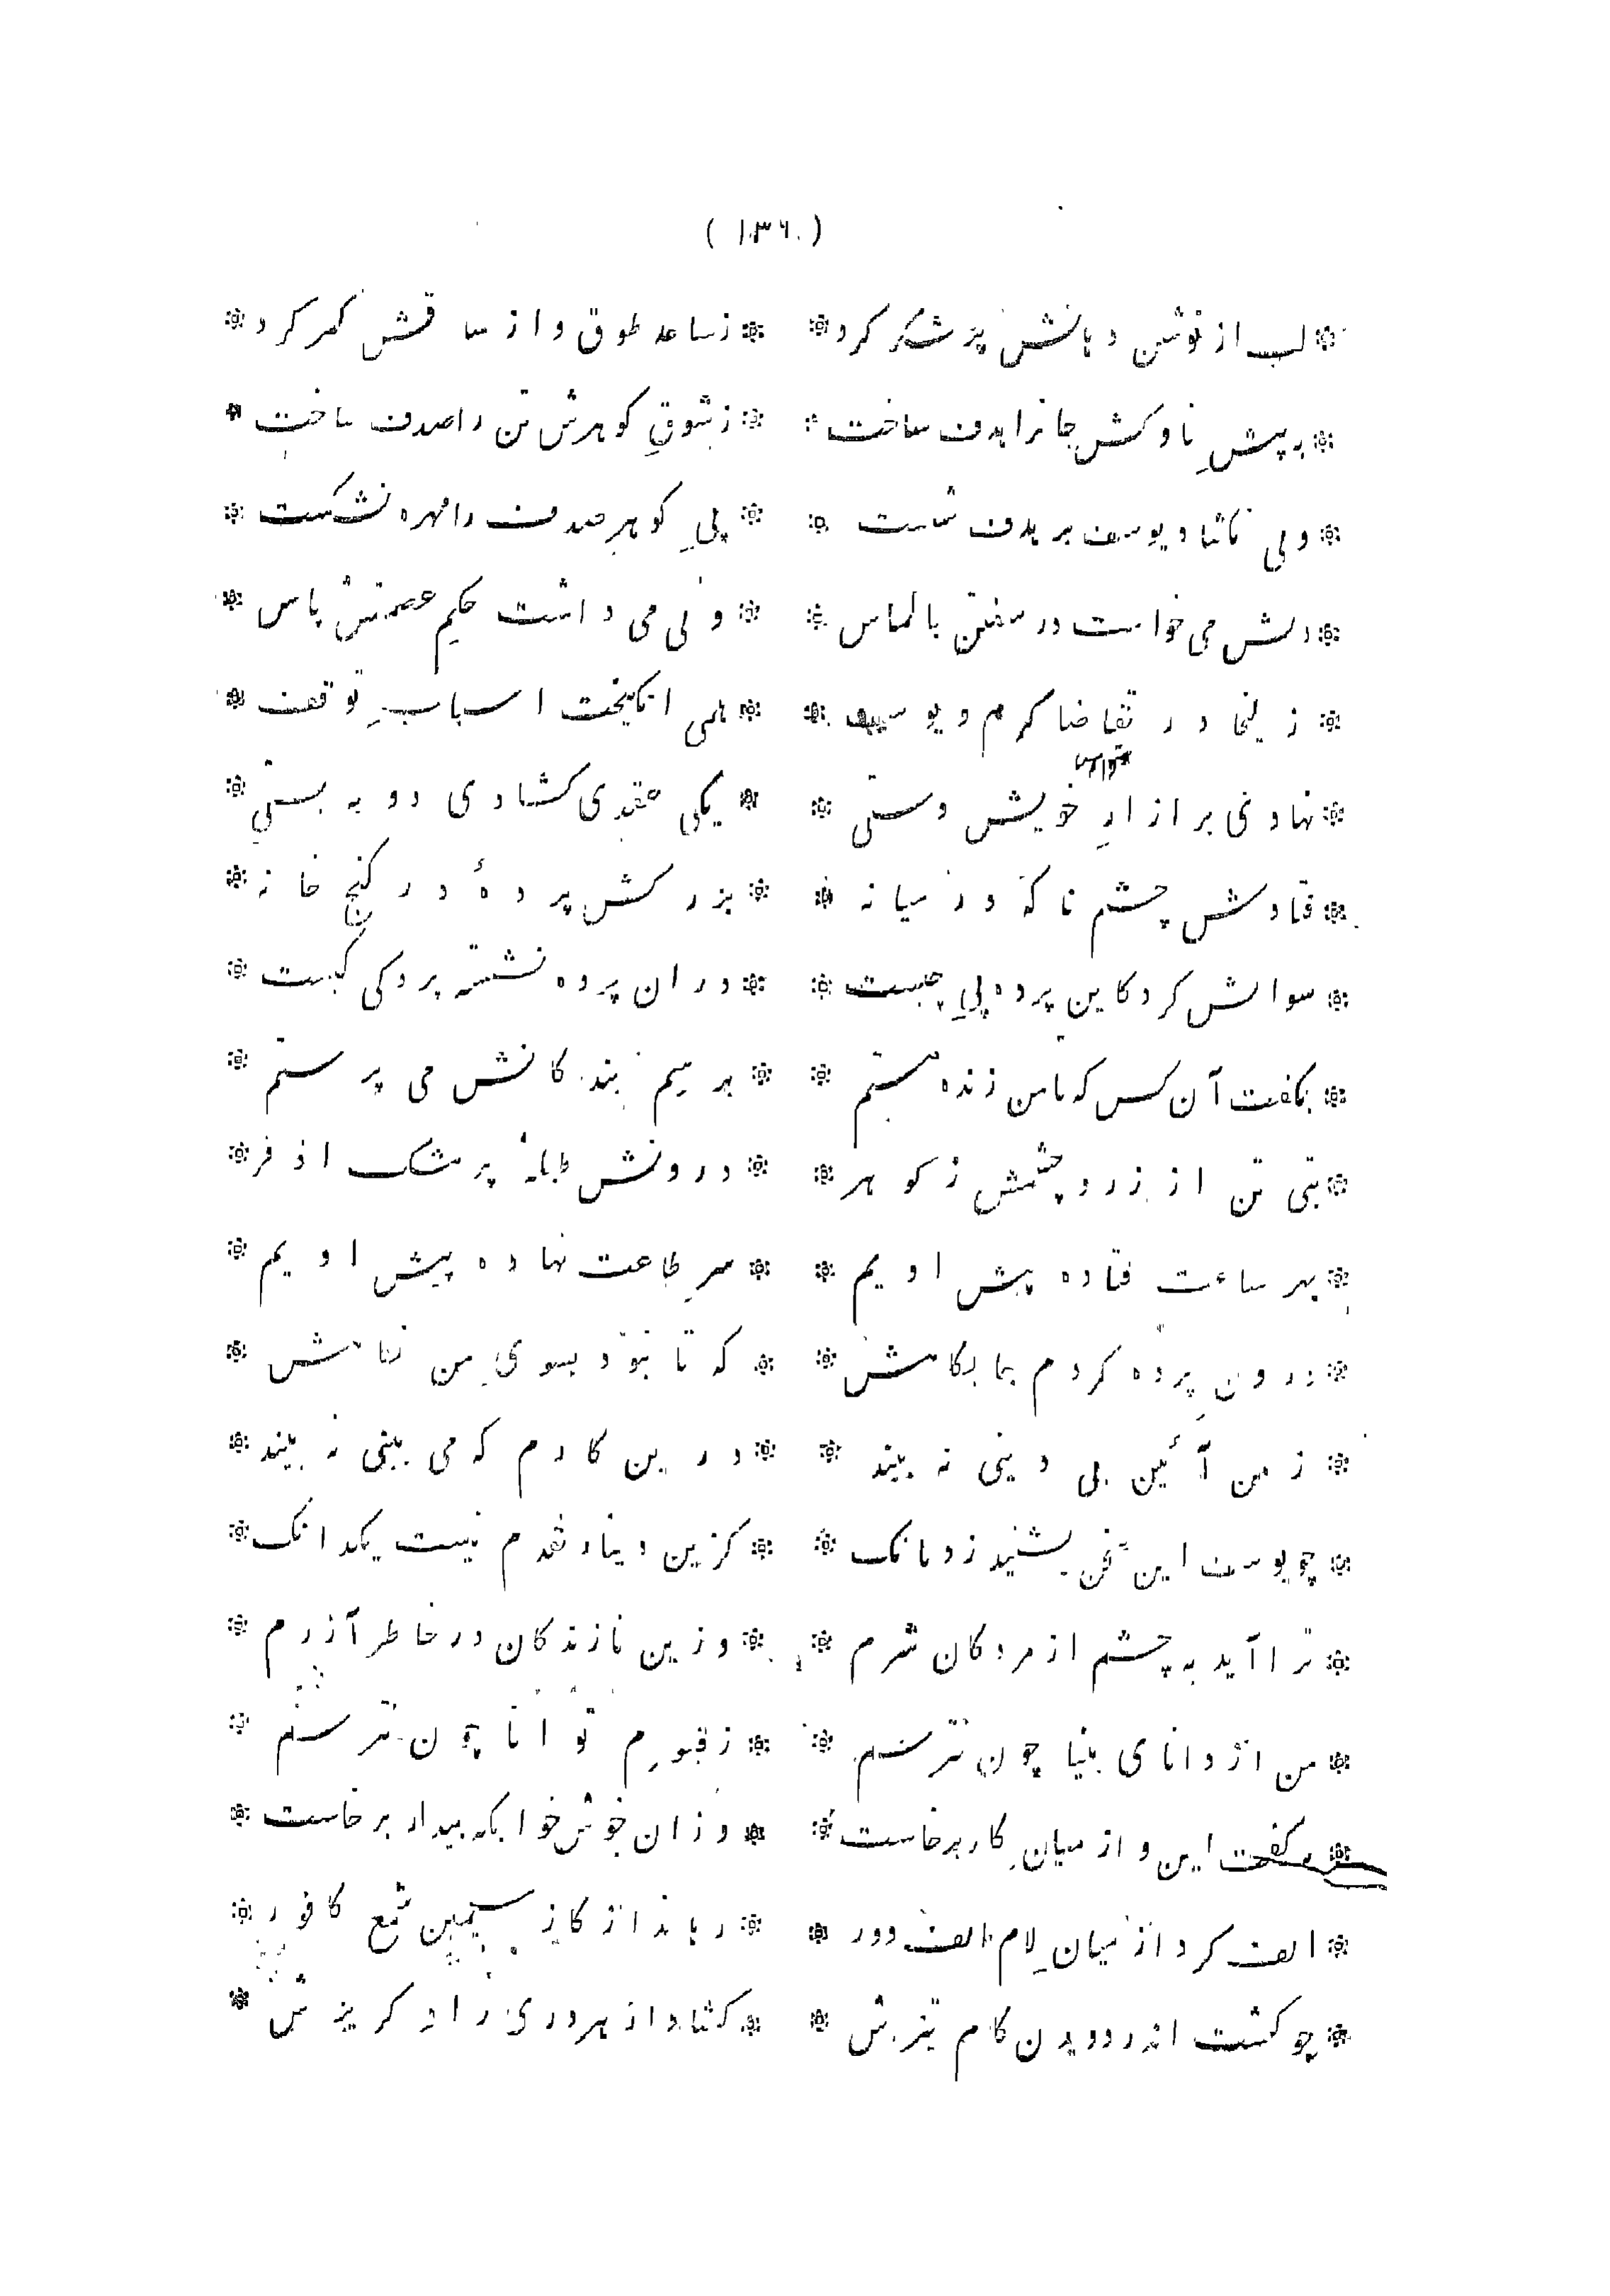 ( ۱۳۶ )
لب از نوشین دهانش پر شکر کرد * ز ساعد طوق و از ساقش کمر کرد
به پیشِ ناوکش جانرا هدف ساخت * ز شوقِ کوهرش تن را صدف ساخت
ولی نکشاد یوسف بر هدف شست * پیِ کوهر صدف را مهره نشکست
دلش می خواست در سفتن بالماس * ولی می داشت حکم عصمتش پاس
زلیخا در تقاضا کرم و یوسف * همی انکیخت اسبابِ توقف
نهادی بر ازارِ خویش دستی * یکی عقدی کشادی دو به بستی
فتادش چشم ناکه در میانه * بزرکش پردهٔ در کنجِ خانه
سوالش کرد کاین پرده پیِ چیست * در ان پرده نشسته پردکی کیست
بکفت آن کس که تا من زنده هستم * برسمِ بندکانش می پرستم
بتی تن از زر و چشمش ز کوهر * درونش طبلهٔ پر مشک اذفر
بهر ساعت فتاده پیش اویم * سرِ طاعت نهاده پیش اویم
درونِ پرده کردم جایکاهش * که تا نبود بسویِ من نکاهش
ز من آئین بی دینی نه بیند * در ین کارم که می بینی نه بیند
چو یوسف این سخن بشنید زد بانک * کزین دینار نقدم نیست یکدانک
ترا آید به چشم از مردکان شرم * وزین نازندکان در خاطر آزرم
من از دانای بینا چون نترسم * ز قیومِ توانا چون نترسم
بکفت این و از میانِ کار برخاست * وزان خوش خوابکه بیدار برخاست
الف کرد از میانِ لام الف دور * رهاند از کازِ سیمین شمع کافور
چو کشت اندر دویدن کام تیزش * کشاد از هر دری راهِ کریزش